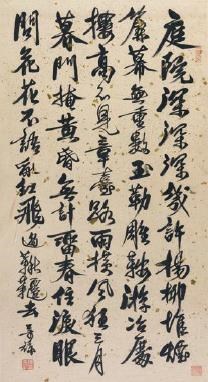 庭院深深深幾許楊柳堆煙
簾幕無重數玉勒雕鞍游冶處
樓高不見章臺路雨橫風狂三月
暮門掩黃昏無計留春住淚眼
問花花不語亂紅飛過鞦韆去